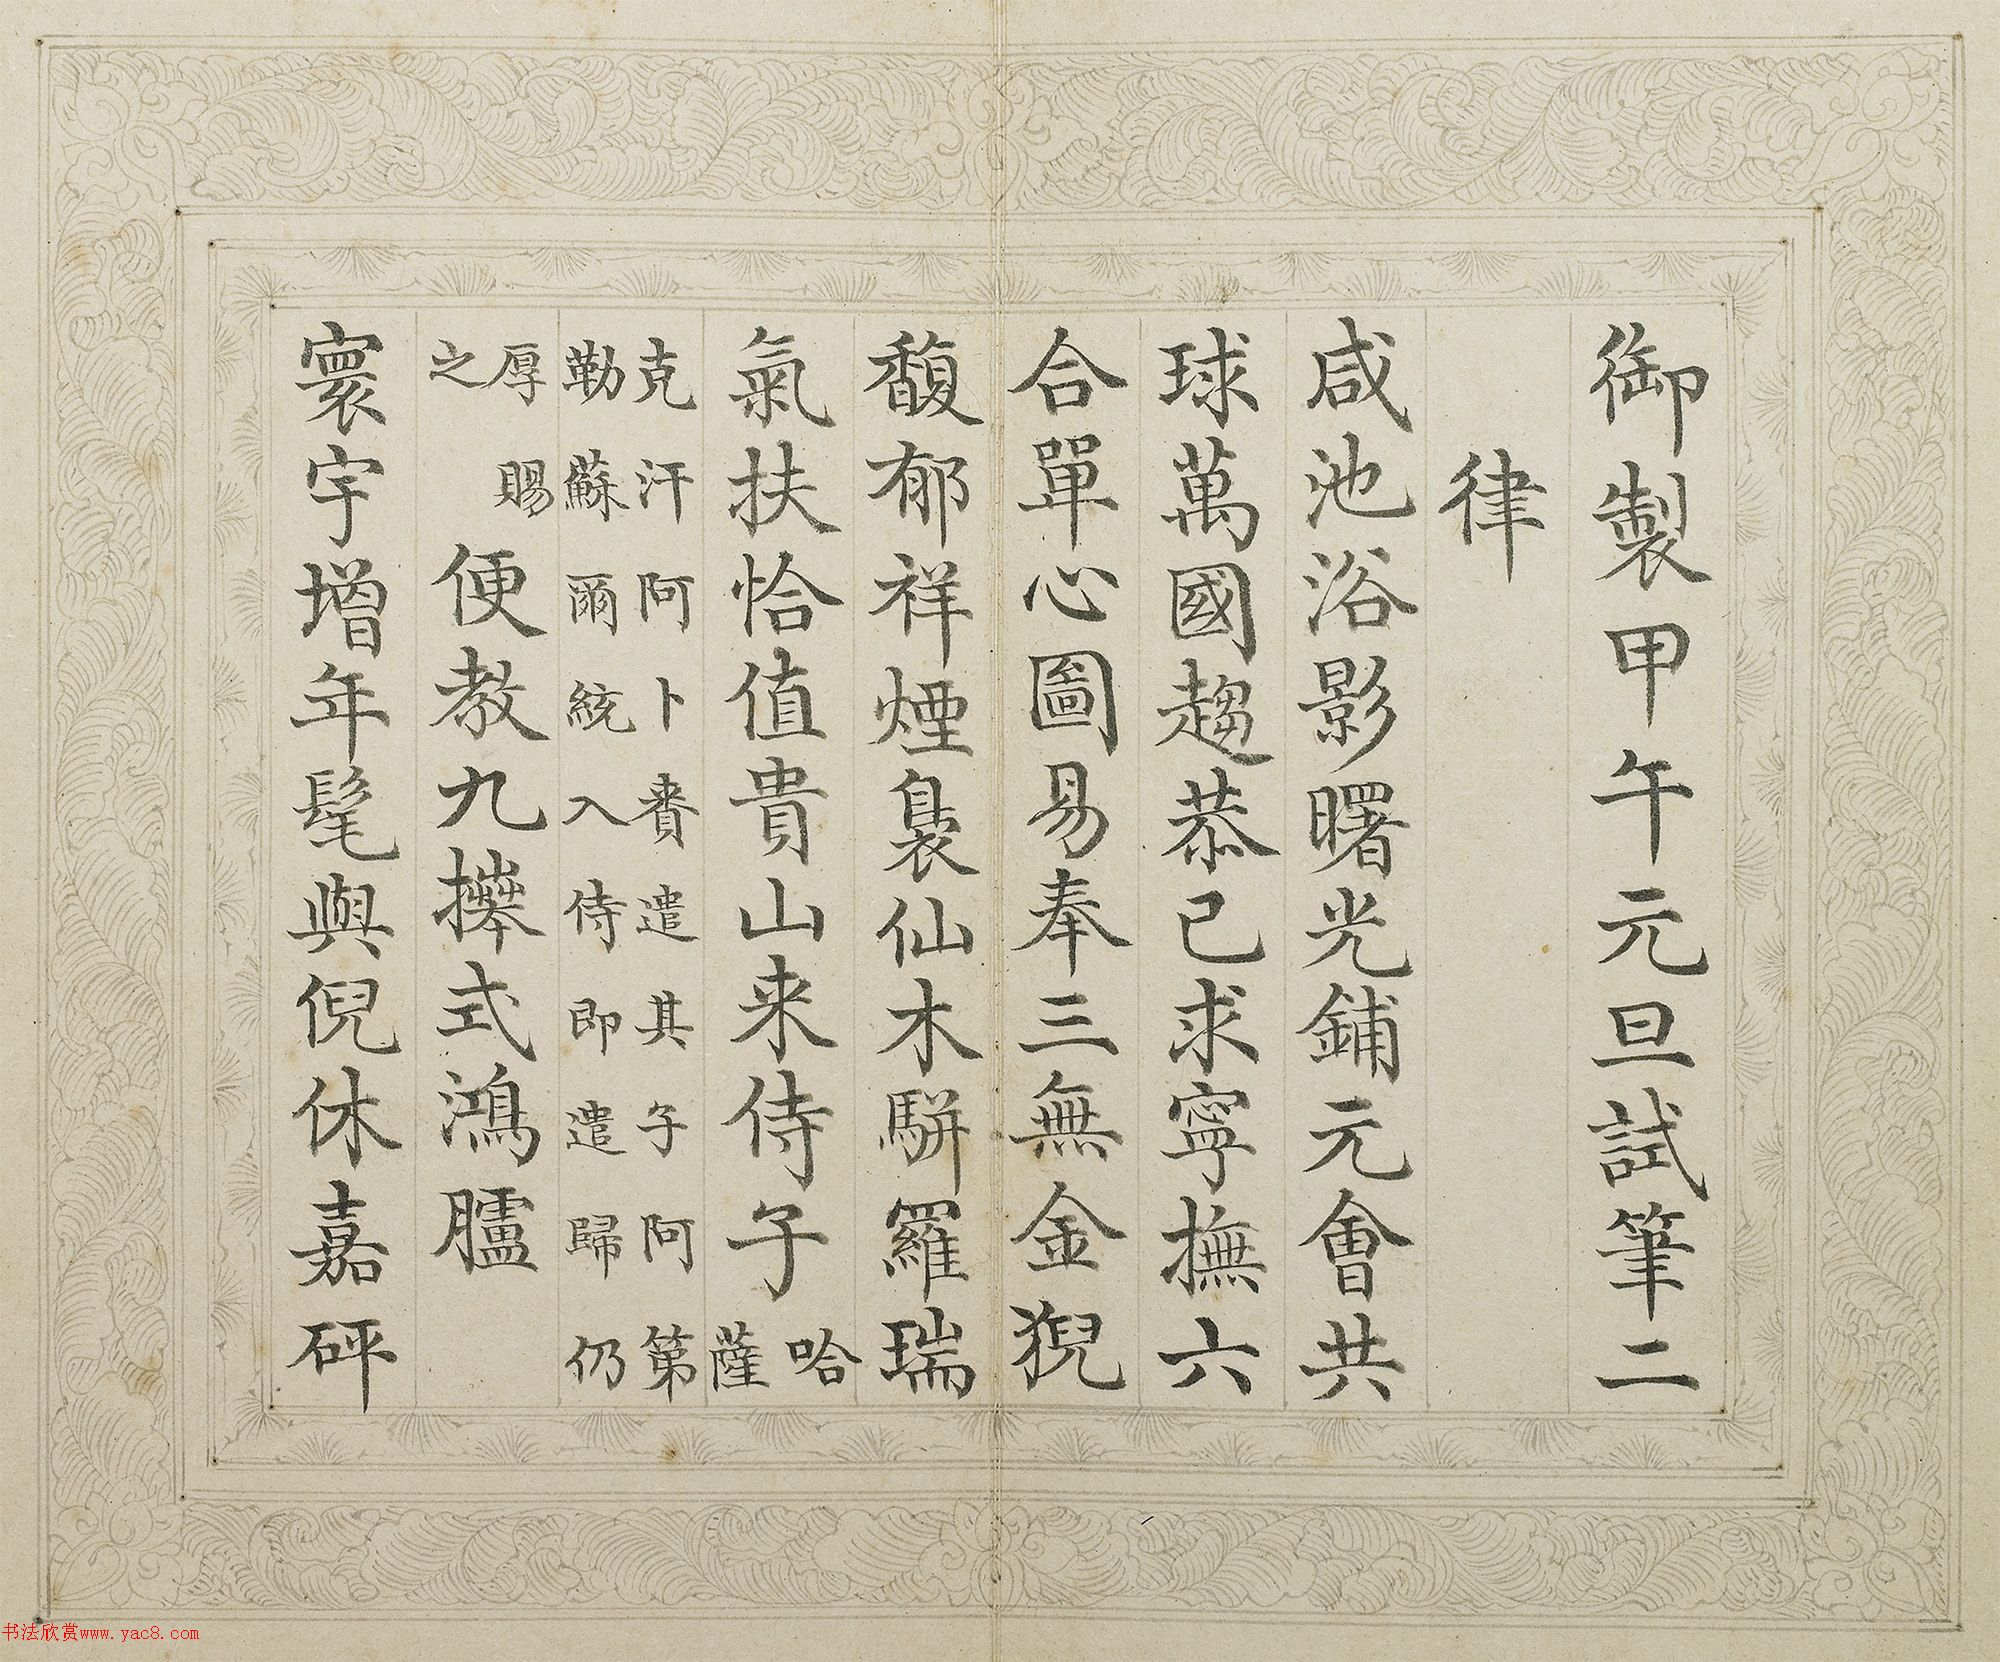 御製甲午元旦試筆二
律
咸池浴影曙光鋪元會共
球萬國趨恭己求寧撫六
合單心圖易奉三無金猊
馥郁祥煙裊仙木駢羅瑞
氣扶恰值貴山来侍子哈薩
克汗阿卜賚遣其子阿第
勒蘇爾統入侍即遣歸仍
厚賜之便教九攑式鴻臚
寰宇增年髦與倪休嘉砰
书法欣赏www.yac8.com